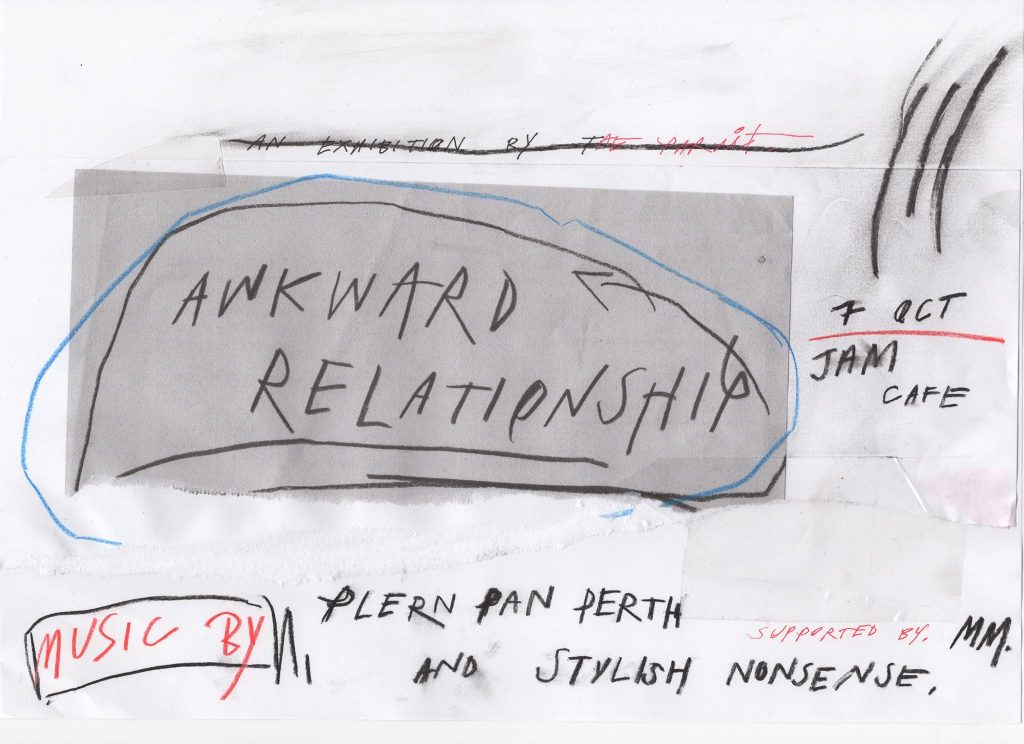 AN EXHIBITION BY TAE PARVIT
AWKWARD
RELATIONSHIP
7 OCT
JAM
CAFE
MUSIC BY
PLERN PAN PERTH
AND STYLISH NONSENSE.
SUPPORTED BY. MM.